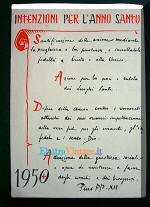 INTENZIONI PER L'ANNO SANTO
Santificazione delle anime mediante
la preghiera e la penitenza, incrollabile
fedeltà a Cristo e alla Chiesa.
Azione per la pace e tutela
dei Luoghi Santi.
Difesa della Chiesa contro i
dei suoi nemici impetrazione
della vera fede per gli erranti, gl'in
fedeli e i senza Dio
Attuazione della giustizia sociale,
e opere di assistenza a favore
degli umili e dei bisognosi.
1950
Pius PP. XII